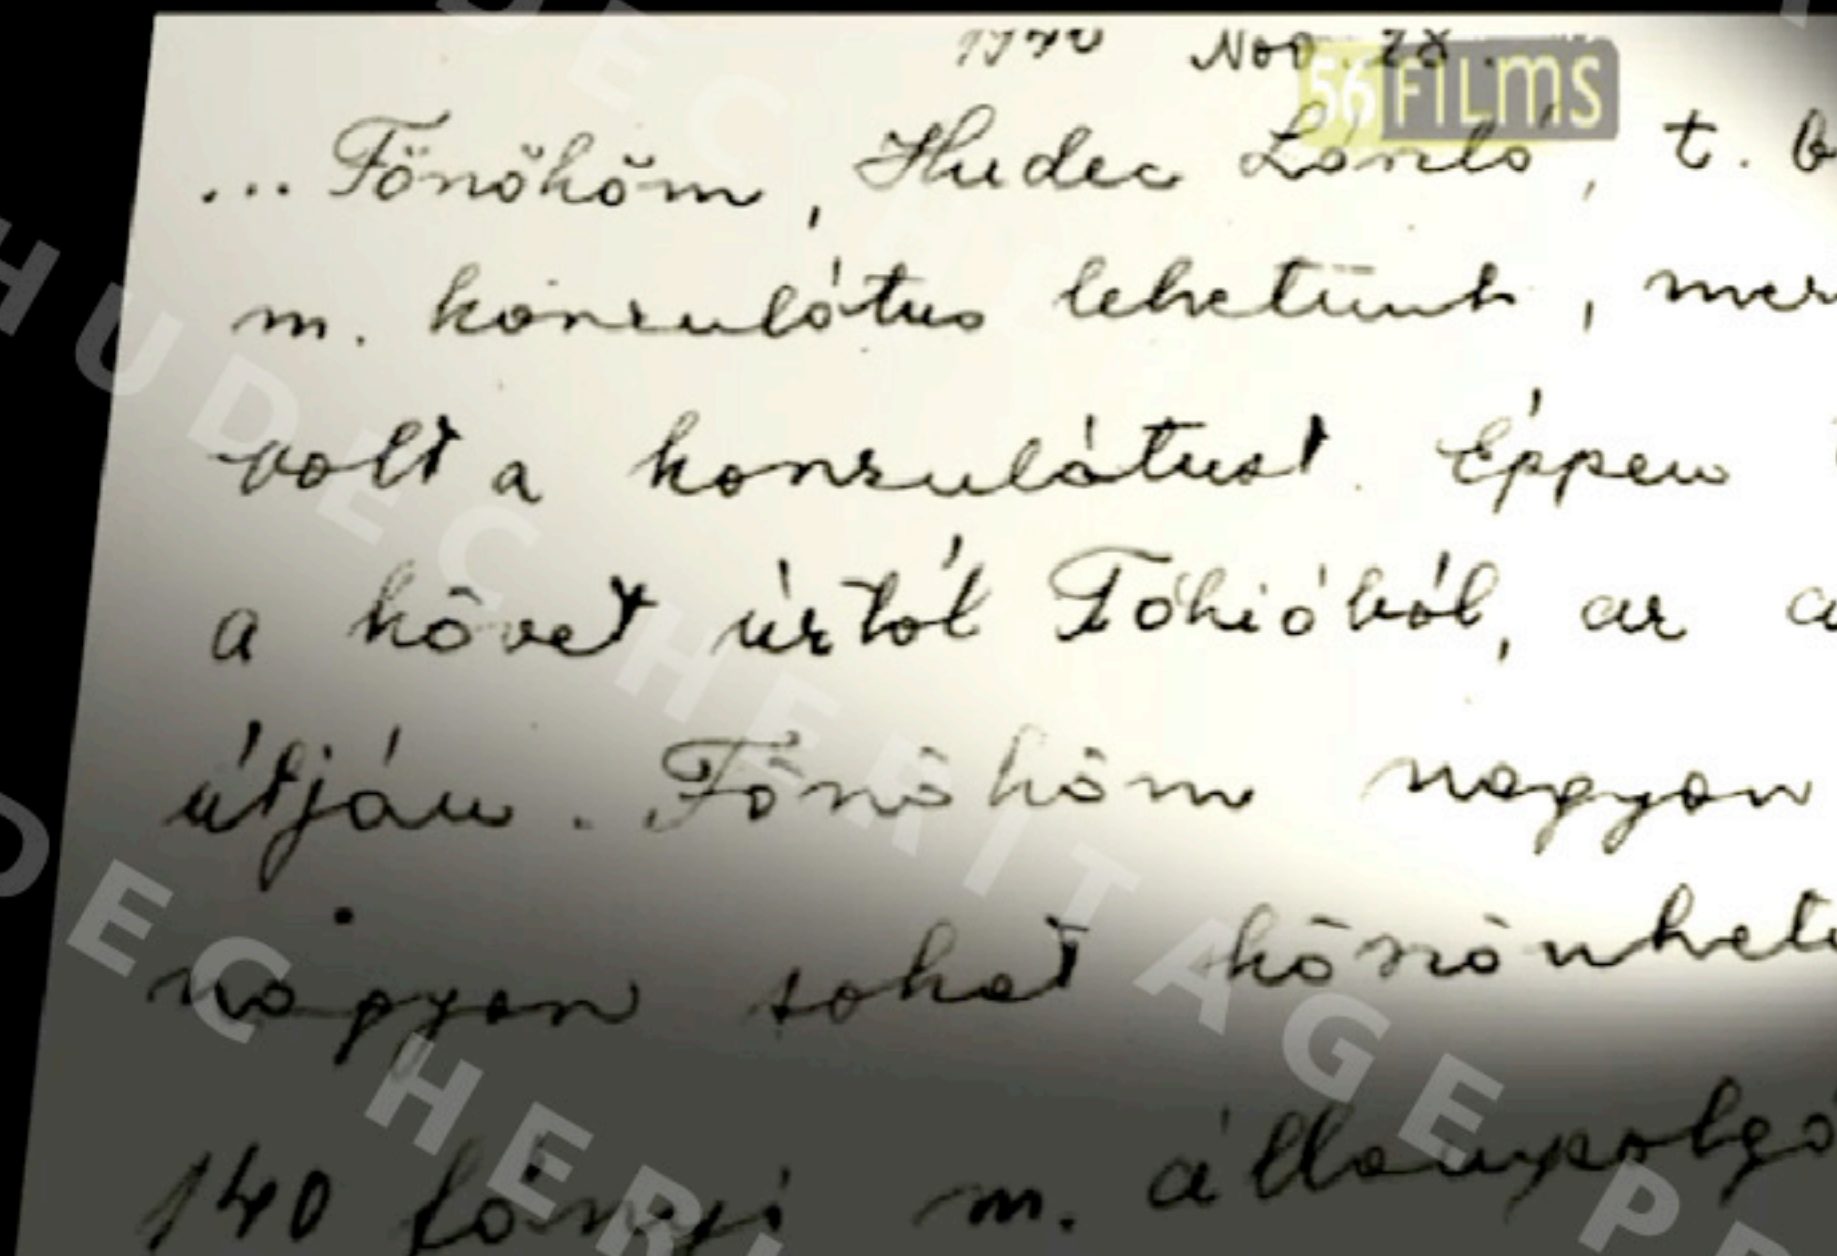 Nov. 28.
56 FILMS
... Főnököm, Hudec László, t. b
m. konzulátus lehetünk, mer
volt a konzulátust. Éppen
a követ úrtól Tókióból, az a
útján. Főnököm nagyon
nagyon sokat köszönhet
140 főnyi m. állampolgá
HUDEC HERITAGE P
DEC HERI